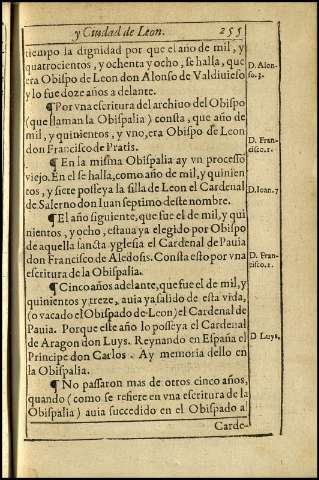 y Ciudad de Leon. 255
tiempo la dignidad por que el año de mil, y
quatrocientos, y ochenta y ocho, se halla, que
era Obispo de Leon don Alonso de Valdiuieso
y lo fue doze años a delante.
D. Alon-
so. 3.
¶ Por vna escritura del archiuo del Obispo
(que llaman la Obispalia) consta, que año de
mil, y quinientos, y vno, era Obispo de Leon
don Francisco de Pratis.
D. Fran-
cisco. 1.
¶ En la misma Obispalia ay vn processo
viejo. En el se halla, como año de mil, y quinien
tos, y siete posseya la silla de Leon el Cardenal
de Salerno don Iuan septimo deste nombre.
D. Ioan. 7
¶ El año siguiente, que fue el de mil, y qui
nientos, y ocho, estaua ya elegido por Obispo
de aquella sancta yglesia el Cardenal de Pauia
don Francisco de Aledosis. Consta esto por vna
escritura de la Obispalia.
D. Fran-
cisco. 2.
¶ Cinco años adelante, que fue el de mil, y
quinientos y treze, auia ya salido de esta vida,
(o vacado el Obispado de Leon) el Cardenal de
Pauia. Porque este año lo posseya el Cardenal
de Aragon don Luys. Reynando en España el
Principe don Carlos. Ay memoria dello en
la Obispalia.
D. Luys.
¶ No passaron mas de otros cinco años,
quando (como se refiere en vna escritura de la
Obispalia) auia succedido en el Obispado al
Carde-